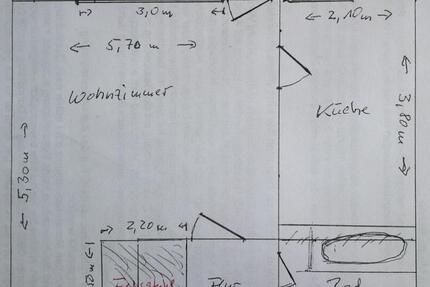 3,0m
2,10m
5,70m
Wohnzimmer
Küche
3,80m
5,30m
2,20m